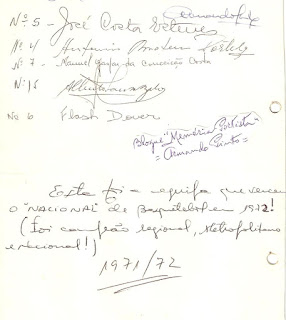 Nº 5 - José Costa Esteves
Nº 4
Nº 7 - Manuel da Conceição Costa
Nº 15
Nº 6 Flash Dover
Blogue "Memória Portista"
= Armando Pinto =
Esta foi a equipa que venceu
o "NACIONAL" de Basquetebol em 1972!
(foi campeão regional, Metropolitano
e nacional!)
1971/72